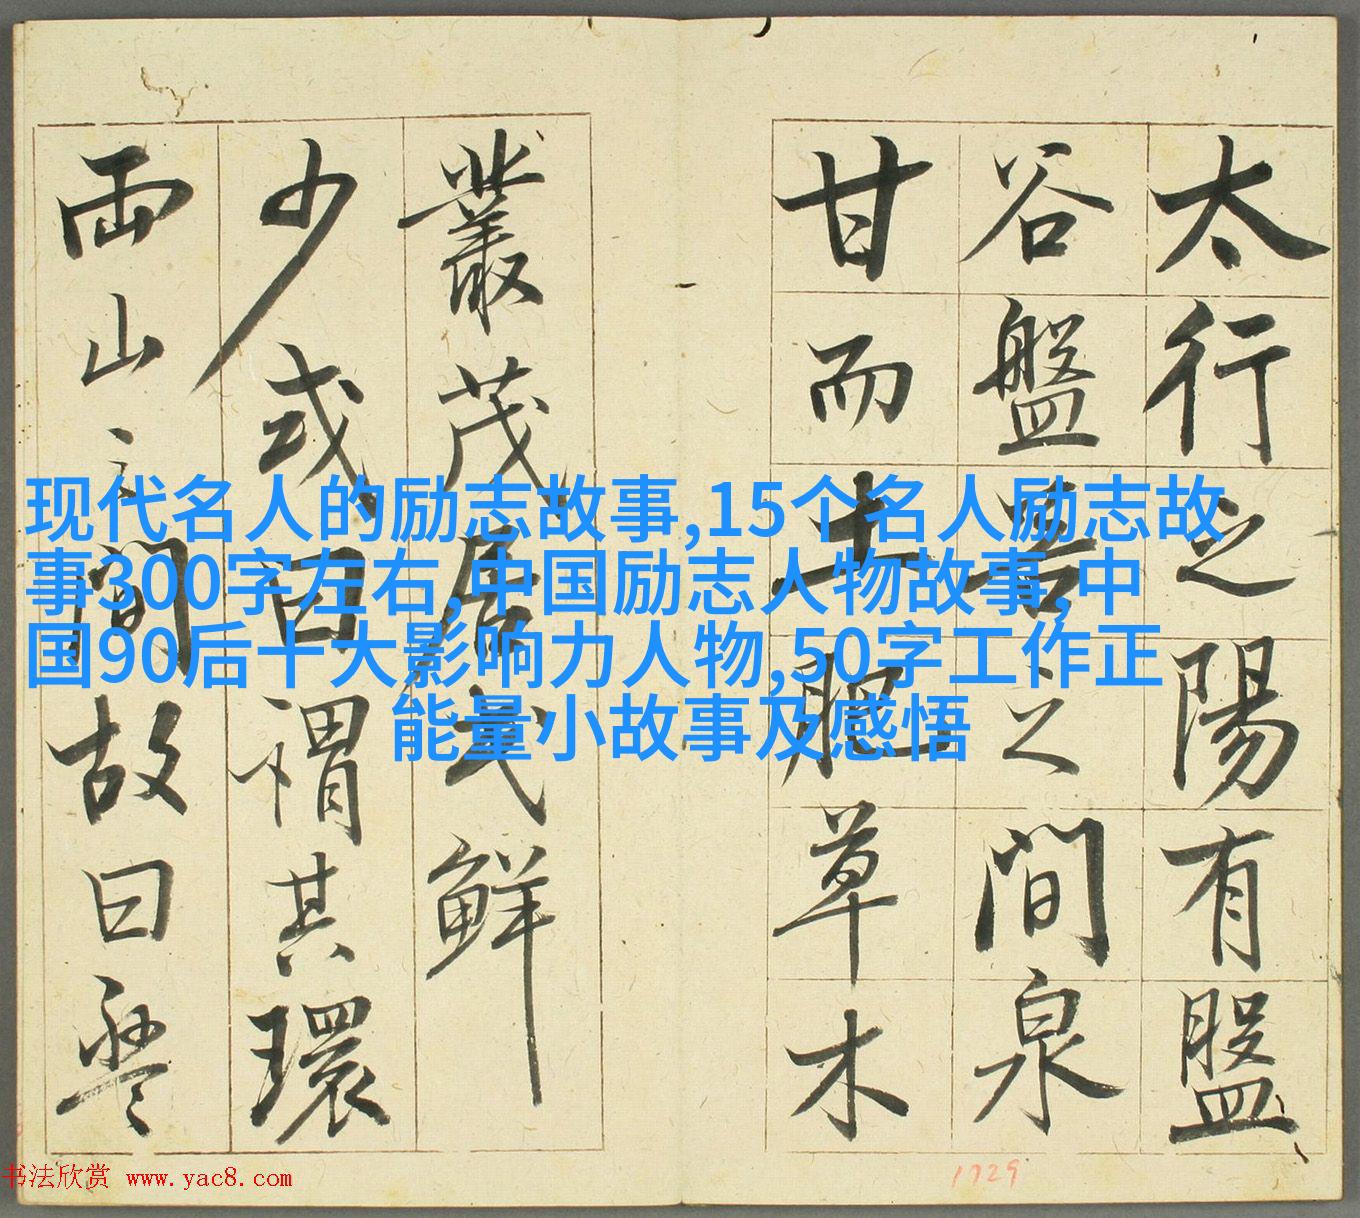 太行之陽有盤
谷盤谷之間泉
甘而土肥草木
叢茂居民鮮
少或曰謂其環
兩山之間故曰盤
现代名人的励志故事,15个名人励志故
事300字左右,中国励志人物故事,中
国90后十大影响力人物,50字工作正
能量小故事及感悟
书法欣赏 www.yac8.com
1729